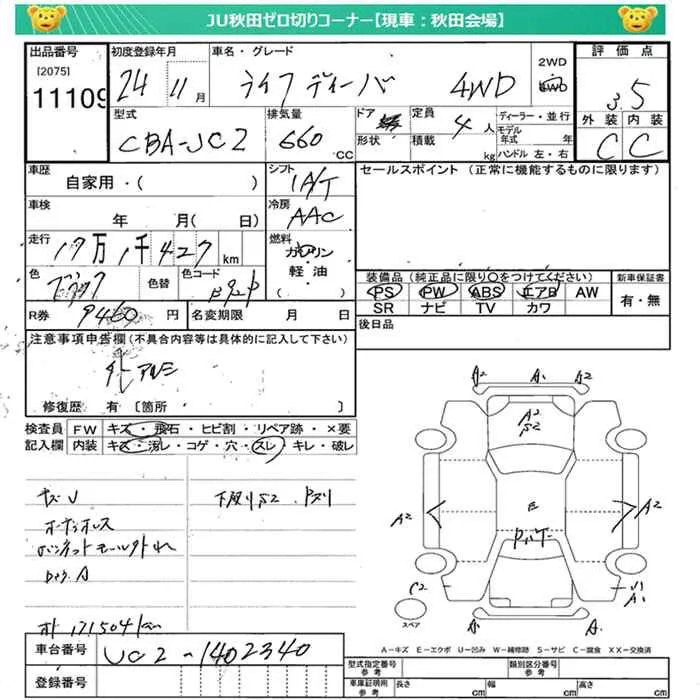 JU秋田ゼロ切りコーナー【現車：秋田会場】
出品番号 初度登録年月 車名・グレード 2WD 4WD 評価点
[2075]
11109 24 11月 ライフ ディーバ 4WD 3.5
型式 排気量 ドア 定員 ディーラー・並行 外装 内装
CBA-JC2 660 CC 形状 積載 4人 kg モデル年式 年 ハンドル 左・右 C C
車歴 シフト セールスポイント (正常に機能するものに限ります)
自家用・( ) IA/T
車検 冷房
年 月( 日) AAC
走行 燃料
17万1千427km ガソリン
色 色替 色コード 軽油 装備品 (純正品に限り○をつけてください) 新車保証書
ブラック B92P ( ) PS PW ABS エアB AW 有・無
SR ナビ TV カワ
R券 9460円 名変期限 月 日 後日品
注意事項申告欄(不具合内容等は具体的に記入して下さい)
外アルミ
修復歴 有〔箇所 〕
検査員 FW キズ・飛石・ヒビ割・リペア跡・×要
記入欄 内装 キズ・汚レ・コゲ・穴・スレ・キレ・破レ
A2 A1 A2
A2
S2
キズU 下廻りS2
A2 E A2
C2 A1
スペア
A A
ホ 171504km
A-キズ E-エクボ U-凹み W-補修跡 S-サビ C-腐食 XX-交換済
車台番号 JC2-1402340
登録番号
型式指定番号 参考 類別区分番号 参考
車庫証明用 参考 長さ cm 幅 cm 高さ cm